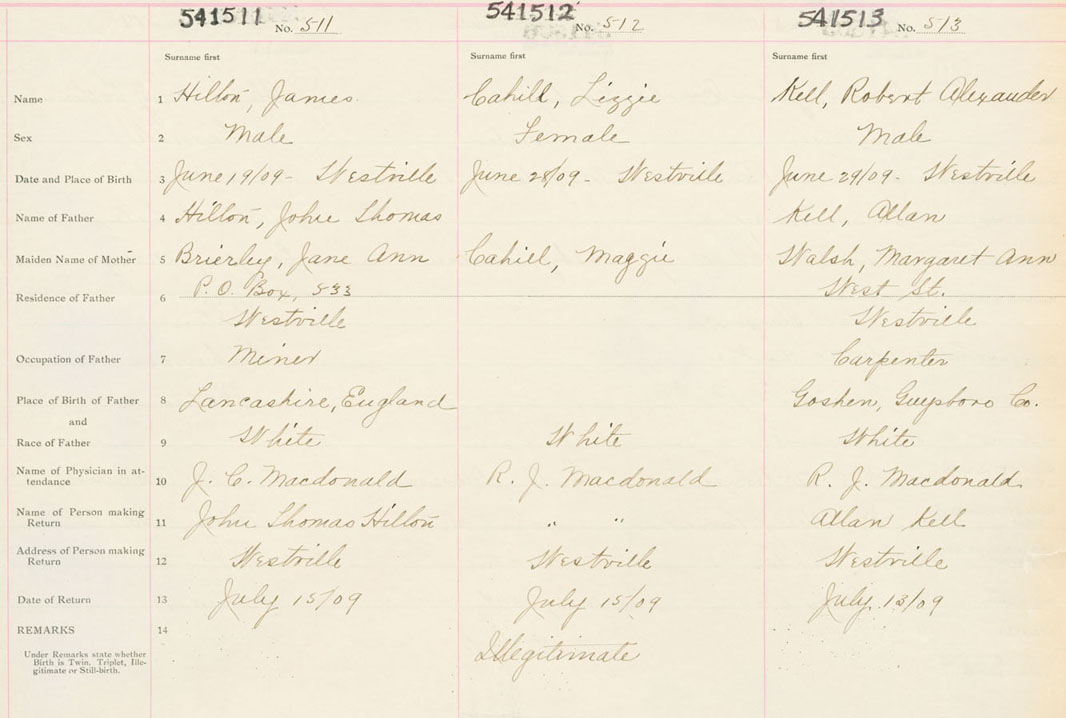 541511 No. 511 541512 No. 512 541513 No. 513
Surname first Surname first Surname first
Name 1 Hilton, James Cahill, Lizzie Kell, Robert Alexander
Sex 2 Male Female Male
Date and Place of Birth 3 June 19/09 - Westville June 28/09 - Westville June 29/09 - Westville
Name of Father 4 Hilton, John Thomas Kell, Allan
Maiden Name of Mother 5 Brierley, Jane Ann Cahill, Maggie Walsh, Margaret Ann
Residence of Father 6 P.O. Box, 533 West St.
Westville Westville
Occupation of Father 7 Miner Carpenter
Place of Birth of Father 8 Lancashire, England Goshen, Guysboro Co.
and
Race of Father 9 White White White
Name of Physician in at-
tendance 10 J. C. Macdonald R. J. Macdonald R. J. Macdonald
Name of Person making
Return 11 John Thomas Hilton " " Allan Kell
Address of Person making
Return 12 Westville Westville Westville
Date of Return 13 July 15/09 July 15/09 July 13/09
REMARKS 14
Under Remarks state whether
Birth is Twin, Triplet, Ille-
gitimate or Still-birth.
Illegitimate